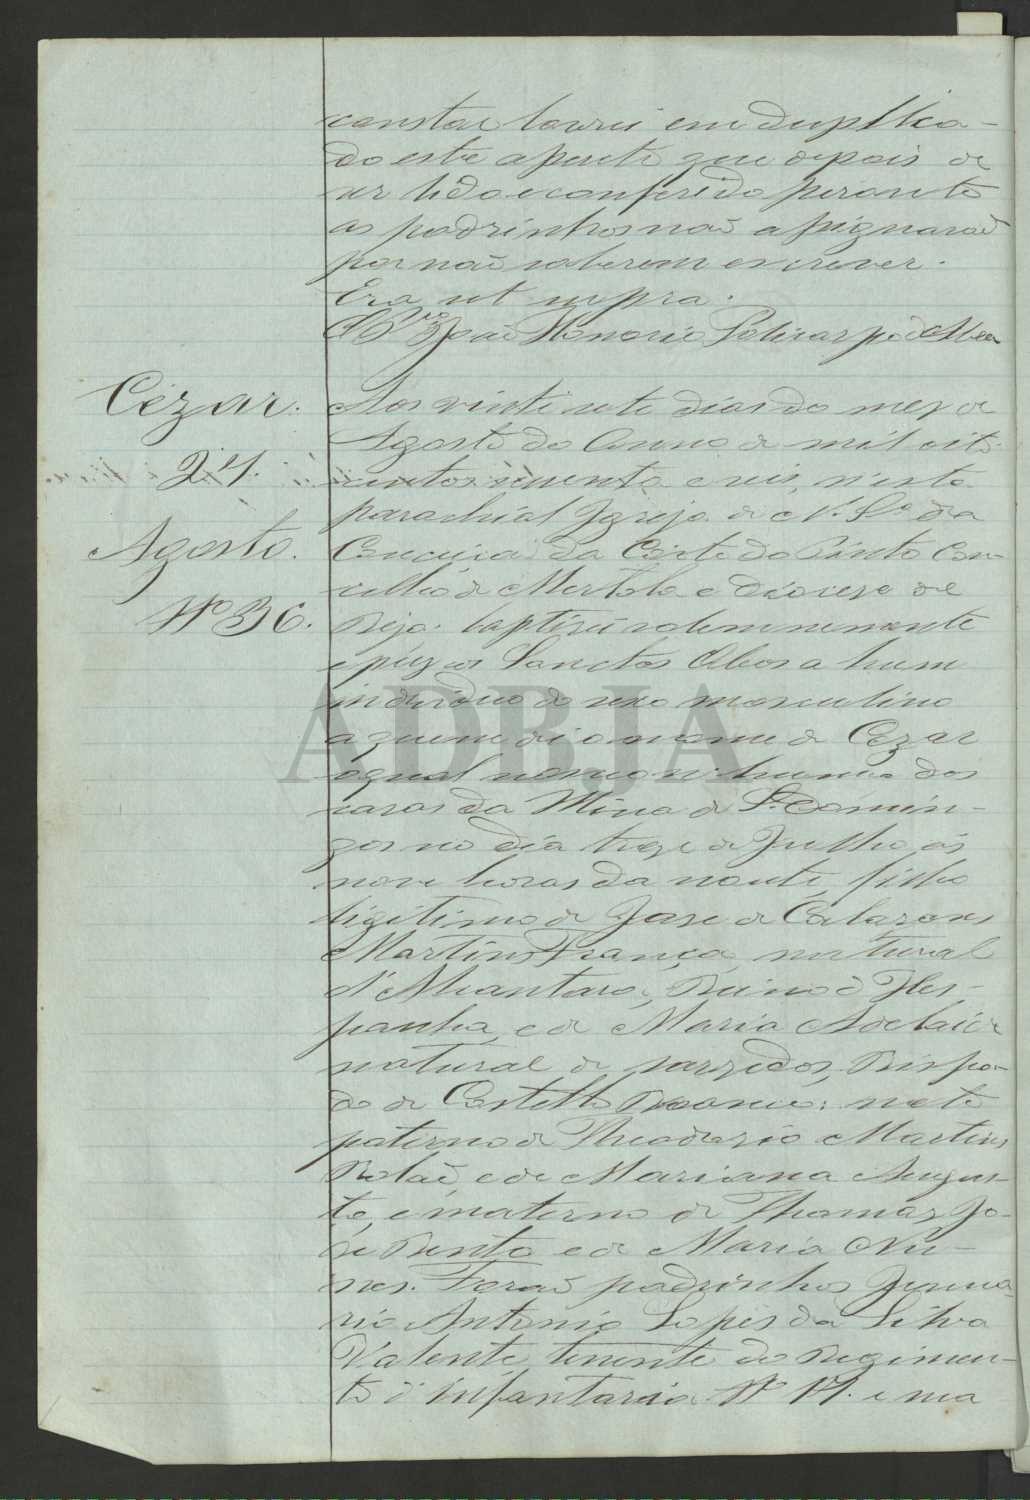 constar lavrei em duplica-
do este assento que depois de
ser lido e conferido perante
os padrinhos naõ assignaraõ
por naõ saberem escrever.
Era ut supra.
O Pro Joaõ Honorio Policarpo d'
Cezar.
27.
Agosto.
Nº 36.
Aos vinte sete dias do mez de
Agosto do Anno de mil oito
centos secenta e seis, n'esta
parochial Igreja de N. Sra da
Conceiçaõ da Corte do Pinto Con-
celho de Mertola e Diocese de
Beja. baptisei solemnemente
e puz os Sanctos Oleos a hum
individuo do sexo masculino
a quem dei o nome de Cezar
o qual nasceo n'huma das
casas da Mina de S. Domin-
gos no dia treze de Julho ás
nove horas da noute, filho
ligitimo de Jose de Calazans
Martins França, natural
d' Alcantara, Reino d'Hes-
panha, e de Maria Adelaide
natural de Sarzedos, Bispa-
do de Castello Branco: neto
paterno de Theodozio Martins
Rolaõ, e de Mariana Augus-
ta, e materno de Thomaz Jo-
se Bento e de Maria Nu-
nes. Foraõ padrinhos Janua-
rio Antonio Lopes da Silva
Valente, tenente do Regimen-
to d'infantaria Nº 17. e
ADBJA